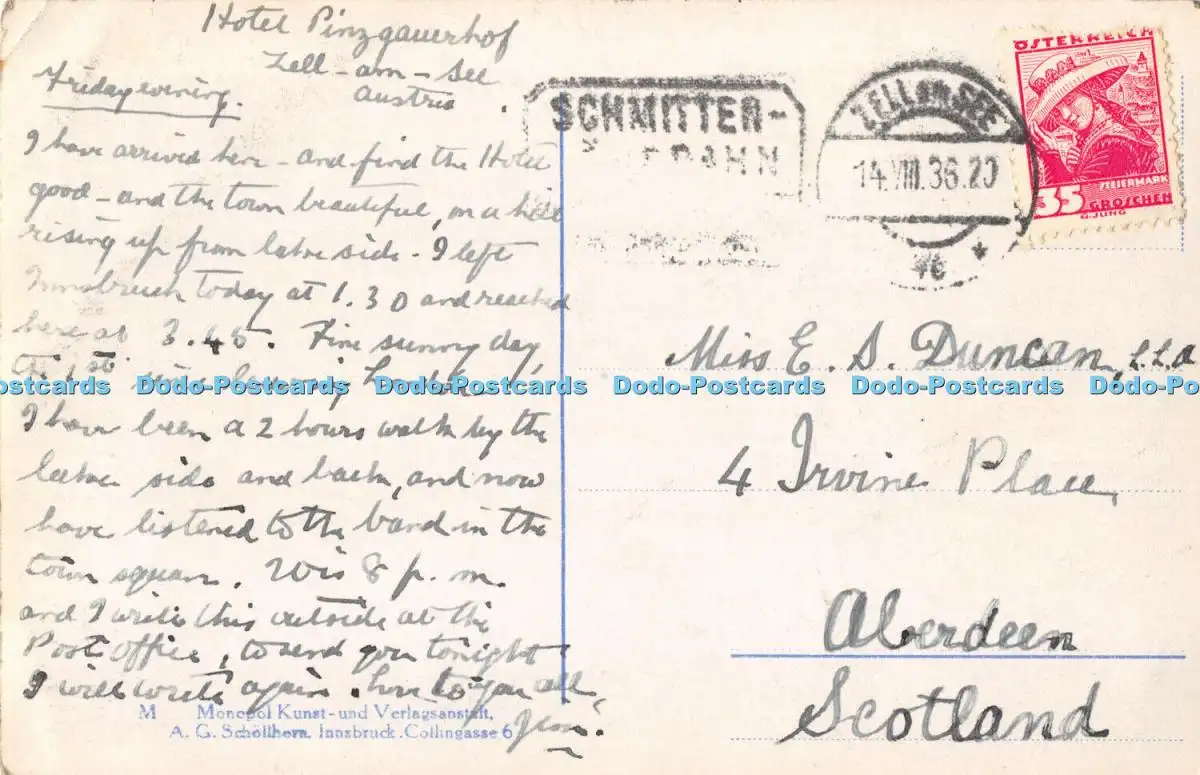 Hotel Pinzgauerhof
Zell-am-See
Austria.
Friday evening.
I have arrived here - and find the Hotel
good - and the town beautiful, on a hill
rising up from lake side. I left
Innsbruck today at 1.30 and reached
here at 3.45. Fine sunny day,
the 1st since leaving London
I have been a 2 hours walk by the
lake side and back, and now
have listened to the band in the
town square. 8 p.m.
and I write this outside at the
Post office, to send you tonight
I will write again. love to you all,
Jim.
M Monopol Kunst- und Verlagsanstalt,
A. G. Schöllhorn, Innsbruck. Collingasse 6
SCHMITTER-
BAHN
ZELL am SEE
14.VIII.36.20
ÖSTERREICH
STEIERMARK
35 GROSCHEN
G.JUNG
Miss E. S. Duncan, L.L.A
4 Irvine Place,
Aberdeen
Scotland
Dodo-Postcards Dodo-Postcards Dodo-Postcards Dodo-Postcards Dodo-Postcards Dodo-Po